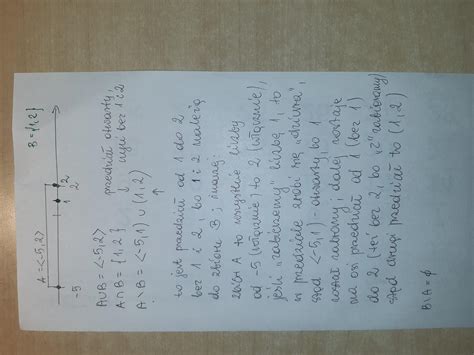 A=<-5,2>
B={1,2}
-5 1 2
A∪B = <-5,2>
A∩B = {1,2}
przedział otwarty,
czyli bez 1 i 2
A\B = <-5,1) ∪ (1,2)
to jest przedział od 1 do 2
bez 1 i 2, bo 1 i 2 należą
do zbioru B; inaczej:
zbiór A to wszystkie liczby
od -5 (włącznie) to 2 (włącznie),
jeśli „zabierzemy" liczbę 1, to
w przedziale zrobi się „dziura",
stąd <-5,1) - otwarty bo 1
został zabrany i dalej zostaje
na osi przedział od 1 (bez 1)
do 2 (też bez 2, bo „2" zabieramy)
stąd drugi przedział to (1,2)
B\A = ∅